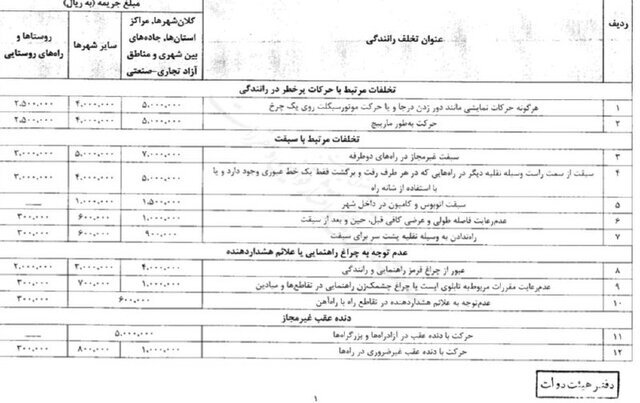 مبلغ جریمه (به ریال)
ردیف
عنوان تخلف رانندگی
کلان‌شهرها، مراکز استان‌ها، جاده‌های بین شهری و مناطق آزاد تجاری-صنعتی
سایر شهرها
روستاها و راه‌های روستایی
تخلفات مرتبط با حرکات پرخطر در رانندگی
۱ هرگونه حرکات نمایشی مانند دور زدن درجا و یا حرکت موتورسیکلت روی یک چرخ ۵.۰۰۰.۰۰۰ ۴.۰۰۰.۰۰۰ ۲.۵۰۰.۰۰۰
۲ حرکت به‌طور مارپیچ ۵.۰۰۰.۰۰۰ ۴.۰۰۰.۰۰۰ ۲.۵۰۰.۰۰۰
تخلفات مرتبط با سبقت
۳ سبقت غیرمجاز در راه‌های دوطرفه ۷.۰۰۰.۰۰۰ ۵.۰۰۰.۰۰۰ ۳.۰۰۰.۰۰۰
۴ سبقت از سمت راست وسیله نقلیه دیگر در راه‌هایی که در هر طرف رفت و برگشت فقط یک خط عبوری وجود دارد و یا ۵.۰۰۰.۰۰۰ ۴.۰۰۰.۰۰۰ ۳.۰۰۰.۰۰۰
با استفاده از شانه راه
۵ سبقت اتوبوس و کامیون در داخل شهر ۱.۵۰۰.۰۰۰ ۱.۰۰۰.۰۰۰
۶ عدم‌رعایت فاصله طولی و عرضی کافی قبل، حین و بعد از سبقت ۱.۰۰۰.۰۰۰ ۶۰۰.۰۰۰ ۳۰۰.۰۰۰
۷ راه‌ندادن به وسیله نقلیه پشت سر برای سبقت ۹۰۰.۰۰۰ ۶۰۰.۰۰۰ ۳۰۰.۰۰۰
عدم توجه به چراغ راهنمایی یا علائم هشداردهنده
۸ عبور از چراغ قرمز راهنمایی و رانندگی ۴.۰۰۰.۰۰۰ ۳.۰۰۰.۰۰۰ ۲.۰۰۰.۰۰۰
۹ عدم‌رعایت مقررات مربوط‌به تابلوی ایست یا چراغ چشمک‌زن راهنمایی در تقاطع‌ها و میادین ۱.۰۰۰.۰۰۰ ۷۰۰.۰۰۰ ۳۰۰.۰۰۰
۱۰ عدم‌توجه به علائم هشداردهنده در تقاطع راه با راه‌آهن ۶۰۰.۰۰۰ ۳۰۰.۰۰۰
دنده عقب غیرمجاز
۱۱ حرکت با دنده عقب در آزادراه‌ها و بزرگراه‌ها ۵.۰۰۰.۰۰۰
۱۲ حرکت با دنده عقب غیرضروری در راه‌ها ۱.۰۰۰.۰۰۰ ۸۰۰.۰۰۰ ۳۰۰.۰۰۰
دفتر هیئت دولت
۱